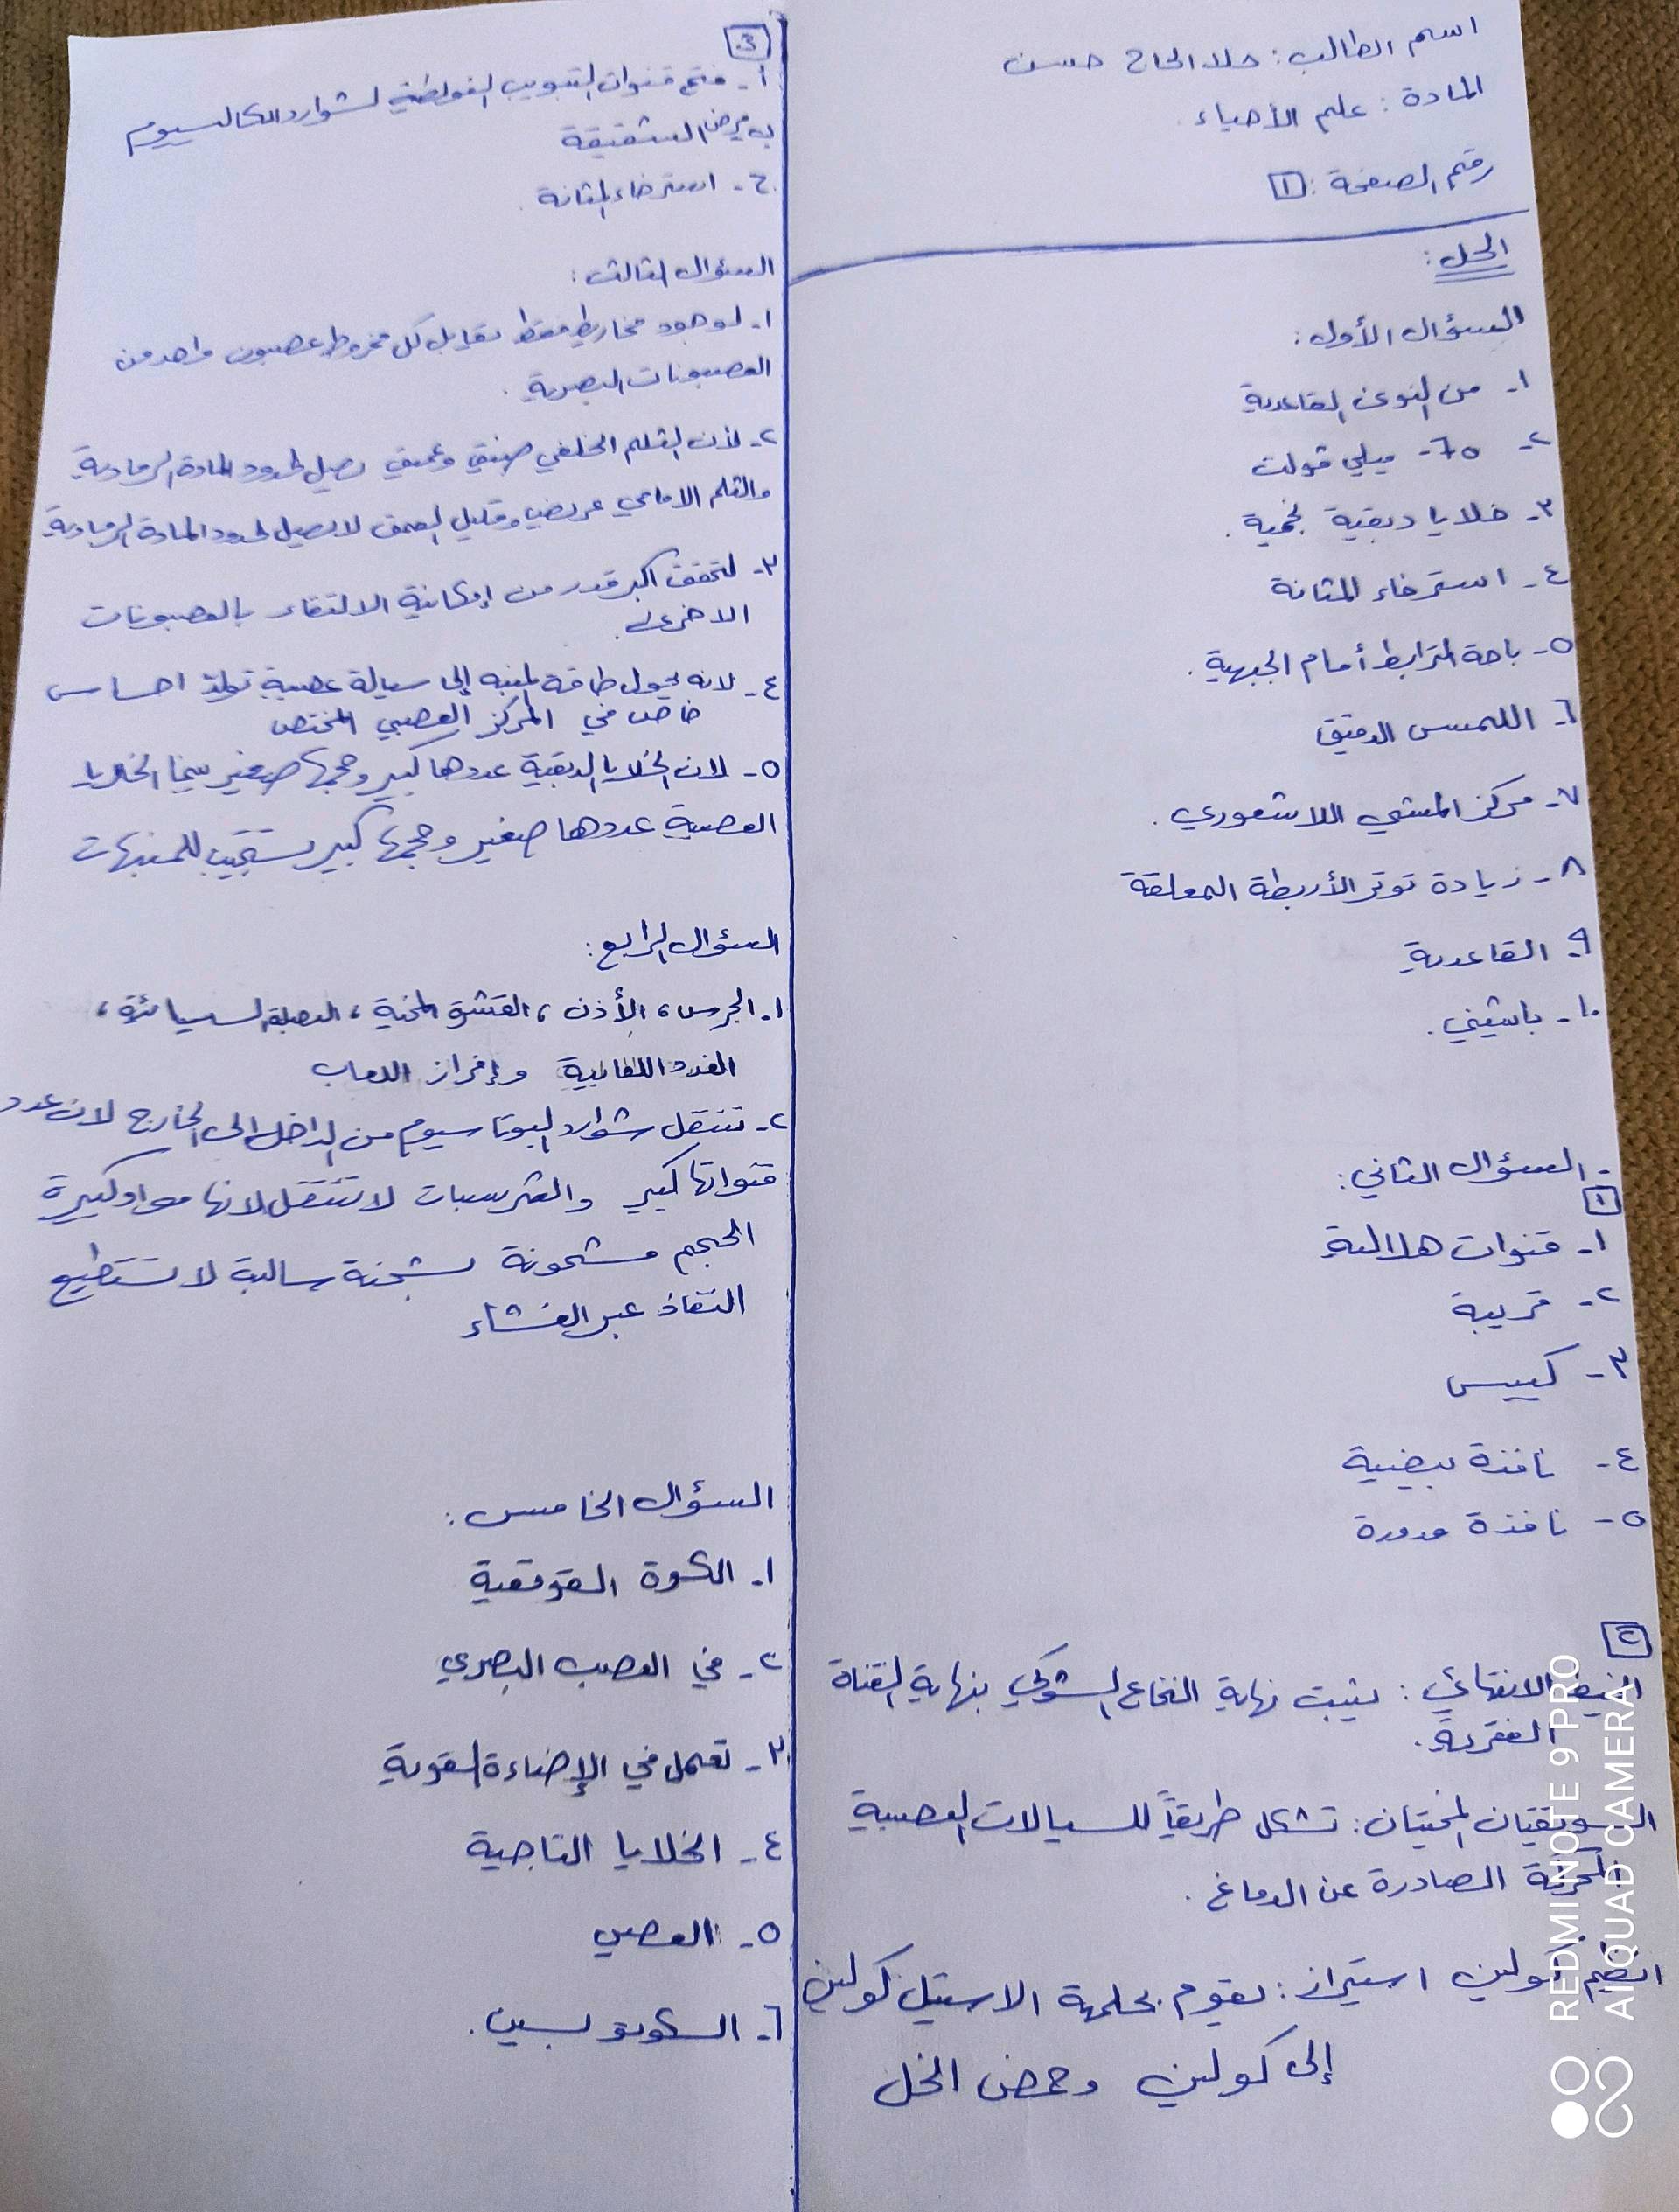 اسم الطالب: حلا الحاج حسن
المادة: علم الأحياء.
رقم الصفحة: ١
الحل:
السؤال الأول:
١- من النوع القاعدية
٢- ٦٥- ميلي ڤولت
٣- خلايا دبقية نجمية.
٤- استرخاء المثانة
٥- باحة الترابط أمام الجبهية.
٦- اللمس الدقيق
٧- مركز المشي اللاشعوري.
٨- زيادة توتر الأربطة المعلقة
٩- القاعدية
١٠- باشيني.
- السؤال الثاني:
١
١- قنوات هلالية
٢- قريبة
٣- كييس
٤- نافذة بيضية
٥- نافذة مدورة
٢
الخيط الانتهائي: يثبت نهاية النخاع الشوكي بنهاية القناة
الفقرية.
السويقتان المخيتان: تشكل طريقاً للسيالات العصبية
المحركة الصادرة عن الدماغ.
انظيم كولين استيراز: يقوم بحلمهة الاستيل كولين
إلى كولين وحمض الخل
3
أ- فتح قنوات التبويب الفولطية لشوارد الكالسيوم
ب- مرض الشقيقة
ج- استرخاء المثانة.
السؤال الثالث:
١- لوجود مخاريط فقط يقابل كل مخروط عصبون واحد من
العصبونات البصرية.
٢- لأن الثلم الخلفي ضيق وعميق يصل لحدود المادة الرمادية
والثلم الامامي عريض وقليل العمق لا يصل لحدود المادة الرمادية
٣- لتحقق اكبر قدر من إمكانية الالتقاء بالعصبونات
الاخرى.
٤- لانه يحول طاقة المنبه إلى سيالة عصبية تولد احساس
خاص في المركز العصبي المختص
٥- لان الخلايا الدبقية عددها كبير وحجمها صغير بينما الخلايا
العصبية عددها صغير وحجمها كبير تستجيب للمنبهات
السؤال الرابع:
١- الجرس، الأذن، القشرة المخية، البصلة السيسائية،
الغدد اللعابية وإفراز اللعاب
٢- تنتقل شوارد البوتاسيوم من الداخل الى الخارج لان عدد
قنواتها كبير والشرسبات لا تنتقل لانها مواد كبيرة
الحجم مشحونة بشحنة سالبة لا تستطيع
النفاذ عبر الغشاء
السؤال الخامس:
١- الكوة القوقعية
٢- في العصب البصري
٣- تعمل في الإضاءة القوية
٤- الخلايا التاجية
٥- العصي
٦- السكوتوبسين.
REDMI NOTE 9 PRO
AI QUAD CAMERA